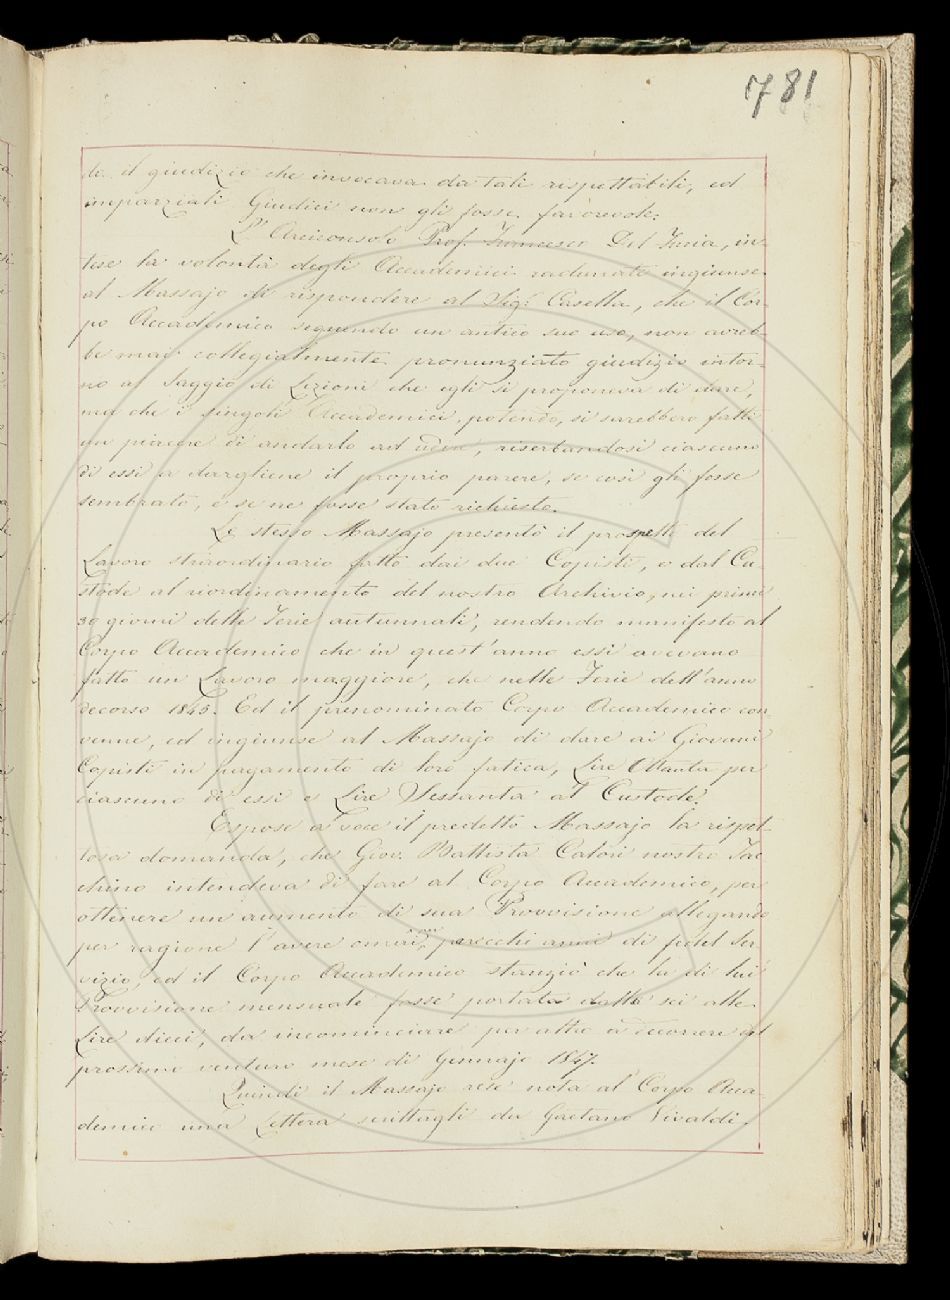 781
de il giudizio che invocava da tali rispettabili, ed
imparziali Giudici non gli fosse favorevole.
L'Arciconsolo Prof. Francesco Del Furia, in-
tese la volontà degli Accademici radunati ingiunse
al Massajo di rispondere al Sig.r Casella, che il Cor-
po Accademico seguendo un antico suo uso, non avreb-
be mai collegialmente pronunziato giudizio intor-
no al Saggio di Lezioni che egli si proponeva di dare,
ma che i singoli Accademici, potendo, si sarebbero fatti
un piacere di andarlo ad udire, riserbandosi ciascuno
di essi a dargliene il proprio parere, se così gli fosse
sembrato, e se ne fosse stato richiesto.
Lo stesso Massajo presentò il prospetto del
Lavoro straordinario fatto dai due Copisti, e dal Cu-
stode al riordinamento del nostro Archivio, nei primi
30 giorni delle Ferie autunnali, rendendo manifesto al
Corpo Accademico che in quest'anno essi avevano
fatto un Lavoro maggiore, che nelle Ferie dell'anno
decorso 1845. Ed il prenominato Corpo Accademico con-
venne, ed ingiunse al Massajo di dare ai Giovani
Copisti in pagamento di loro fatica, Lire Ottanta per
ciascuno di essi e Lire Sessanta al Custode.
Espose a voce il predetto Massajo la rispet-
tosa domanda, che Giov. Battista Catori nostro Fac
chino intendeva di fare al Corpo Accademico, per
ottenere un aumento di sua Provvisione allegando
per ragione l'avere omai parecchi anni di fedel Ser-
vizio, ed il Corpo Accademico stanziò che la di lui
Provvisione mensuale fosse portata dalle sei alle
Lire dieci, da incominciare per altro a decorrere dal
prossimo venturo mese di Gennajo 1847.
Quindi il Massajo rese nota al Corpo Acca-
demico una Lettera scrittagli da Gaetano Vivaldi.